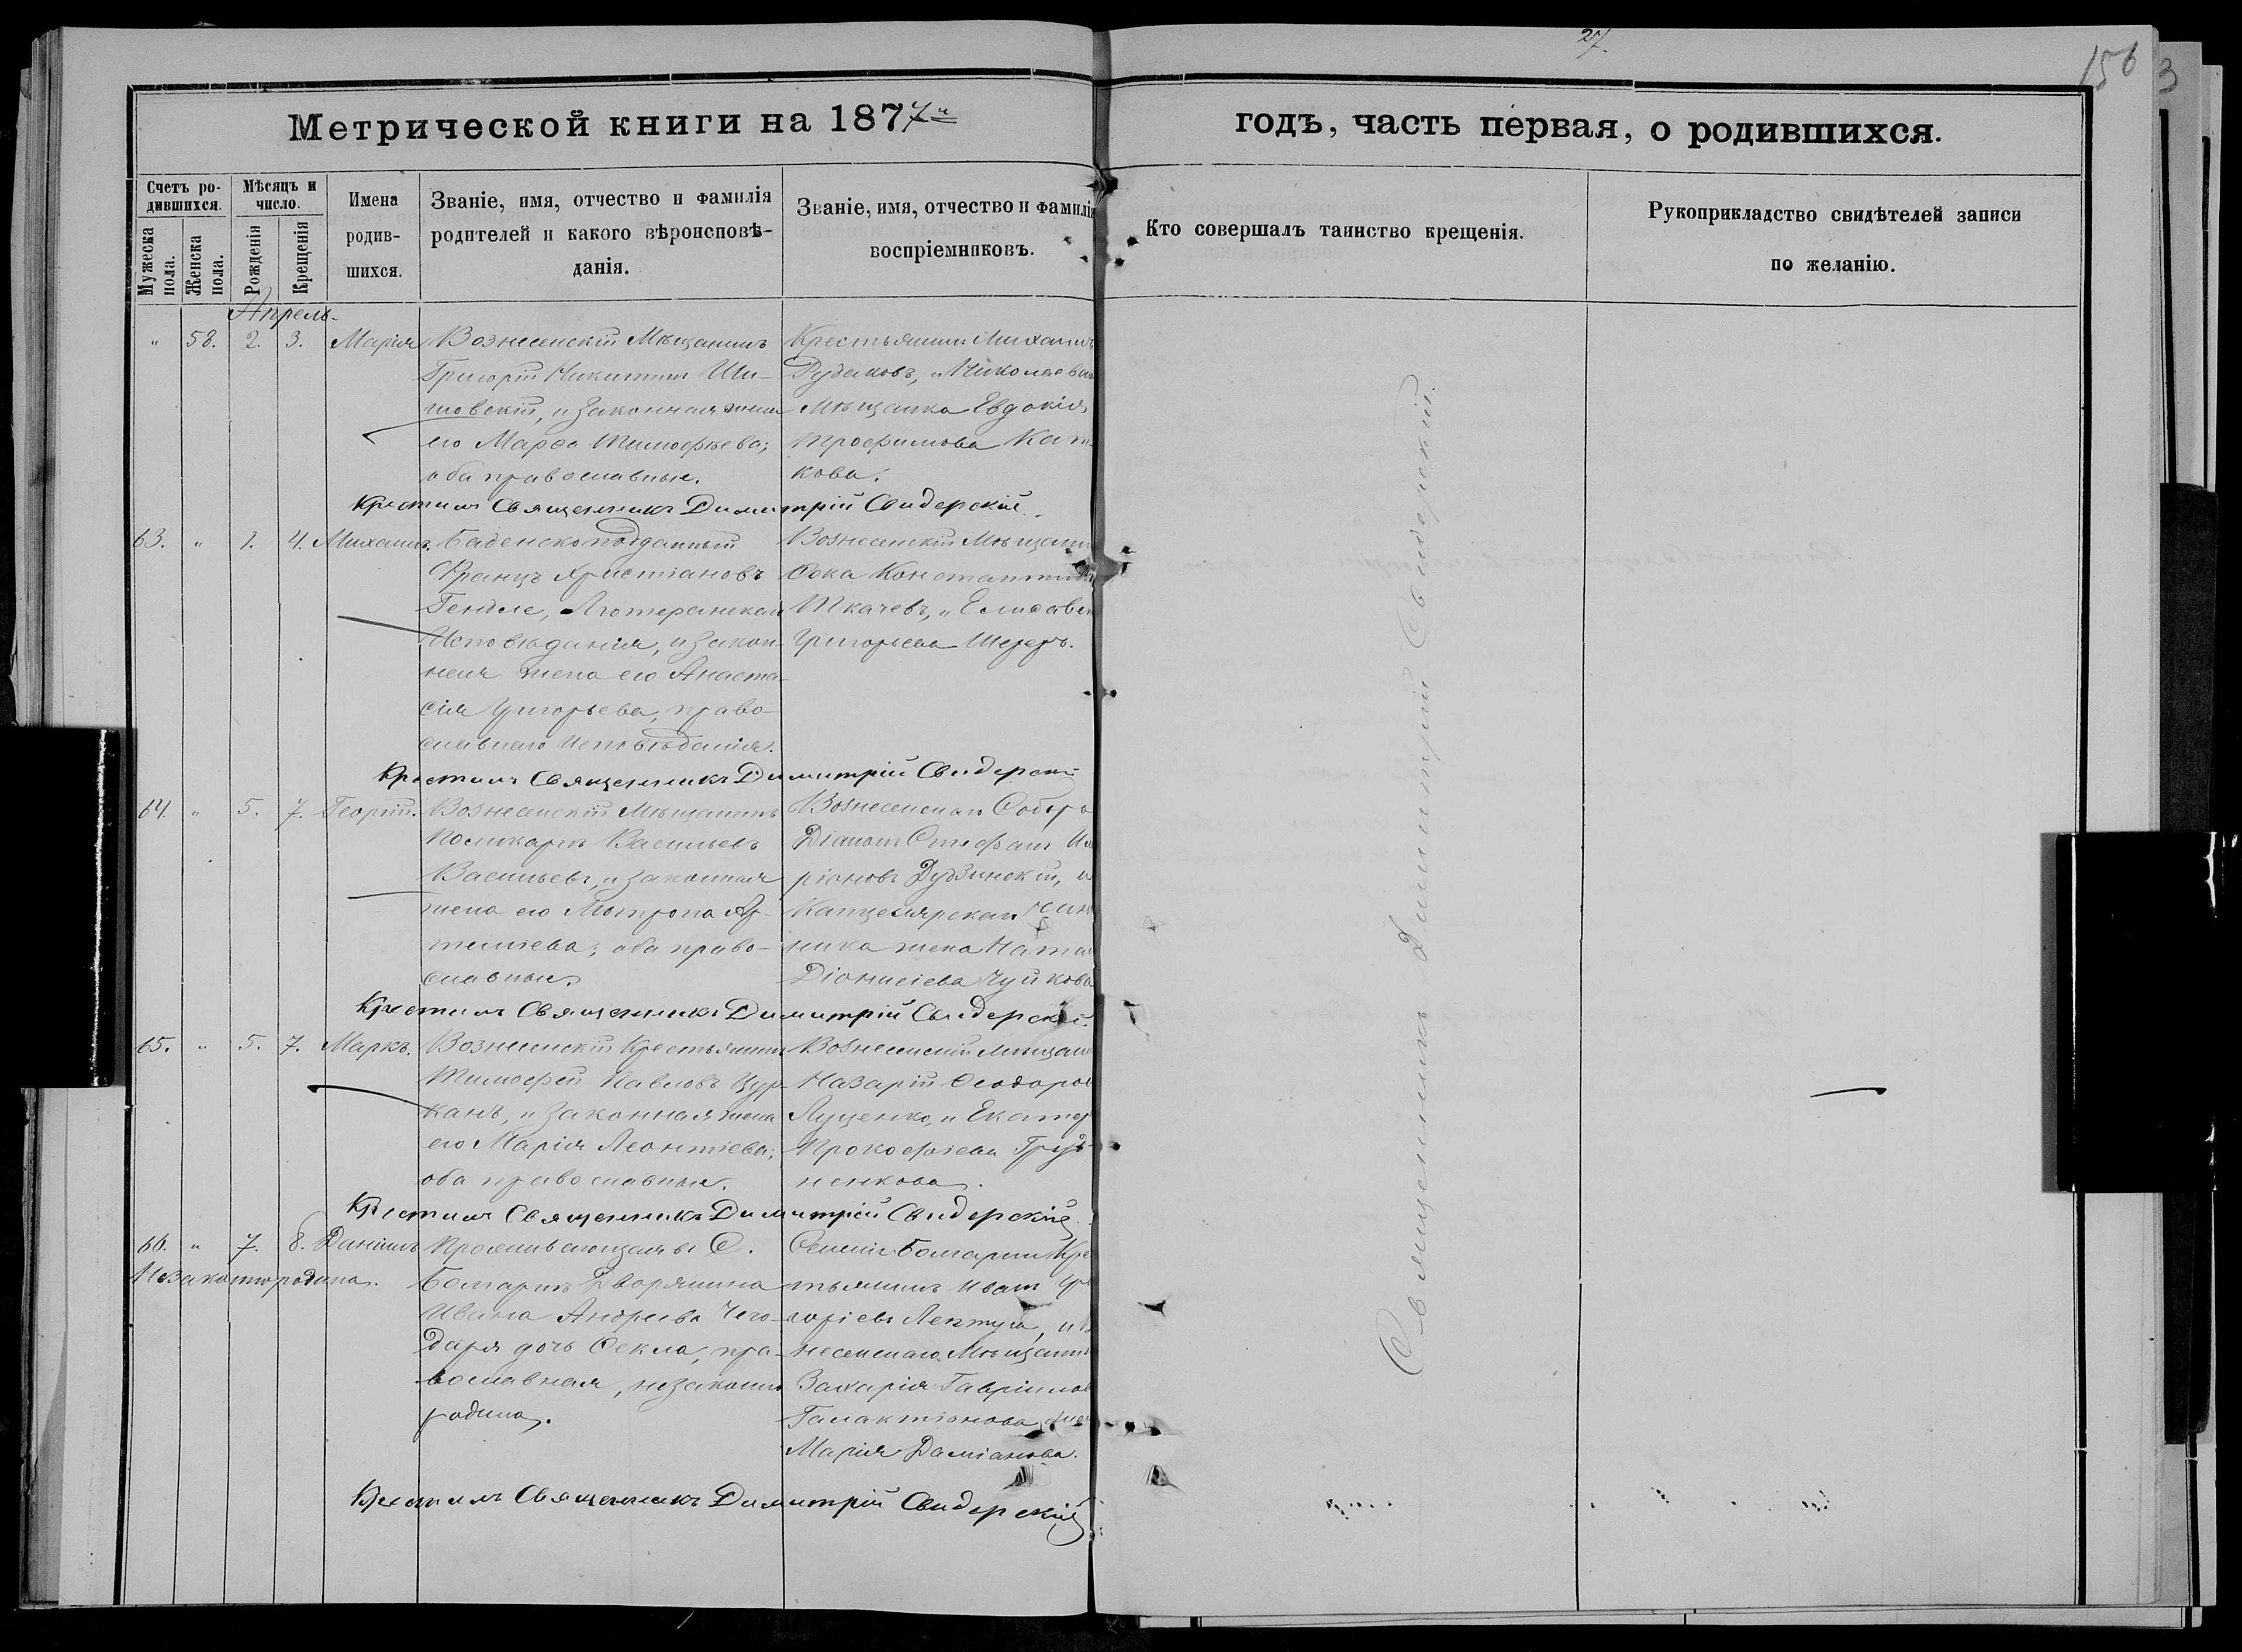 27.
156
3
Метрической книги на 1877й
годъ, часть первая, о родившихся.
Счетъ ро-
дившихся.
Мужеска пола.
Женска пола.
Мѣсяцъ и
число.
Рожденія
Крещенія
Имена
родив-
шихся.
Званіе, имя, отчество и фамилія
родителей и какого вѣроисповѣ-
данія.
Званіе, имя, отчество и фамилія
воспріемниковъ.
Кто совершалъ таинство крещенія.
Рукоприкладство свидѣтелей записи
по желанію.
Апрель
" 58. 2. 3. Марія
Вознесенскій Мѣщанинъ
Григорій Никитинъ
и законная жена
его Марфа Тимофѣева;
оба православные.
Крестьянинъ Михаилъ
Рудаковъ, и Николаевск
Мѣщанка Евдокія
Трофимова Кат-
кова.
Крестилъ Священникъ Димитрій Свидерскій.
63. " 1. 4. Михаилъ.
Баденскоподданный
Францъ Христіановъ
Гендле, Лютеранскаго
Исповѣданія, и закон-
ная жена его Анаста-
сія Григорьева, право-
славнаго исповѣданія.
Вознесенскій Мѣщани
Ѳока Константин
Ткачевъ, и Елисавет
Григорьева Шерерѣ.
Крестилъ Священникъ Димитрій Свидерскі
64. " 5. 7. Георгій.
Вознесенскій Мѣщанинъ
Поликарпъ Васильевъ
Васильевъ, и законная
жена его Мотрона Ар-
темиева; оба право-
славные.
Вознесенскаго Собора
Діаконъ Стефанъ Ил
ріоновъ Дудзинскій, и
Канцелярскаго чин
ника жена Ната
Діонисіева Чуйкова
Крестилъ Священникъ Димитрій Свидерскій.
65. " 5. 7. Маркъ.
Вознесенскій Крестьянинъ
Тимофей Павловъ Цур-
канъ, и законная жена
его Марія Леонтіева;
оба православные.
Вознесенскій мѣщан
Назарій Ѳеодоров
Луценко, и Екатер
Прокофіева Груз-
ненкова.
Крестилъ Священникъ Димитрій Свидерскій.
66. " 7. 8. Даніилъ
Незаконнорожденна.
Проживающая въ С.
Болгаркѣ Дворянина
Ивана Андреева Чего-
даря дочь Ѳекла, пра-
вославная, незаконно
родила.
Селенія Болгарки Кре
тьянинъ Иванъ Гри
горіевъ Лептуга, и Воз
несенскаго Мѣщанина
Захарія Гавріилова
Галактіонова жена
Марія Даміанова.
Крестилъ Священникъ Димитрій Свидерскій
Священникъ Димитрій Свидерскій.